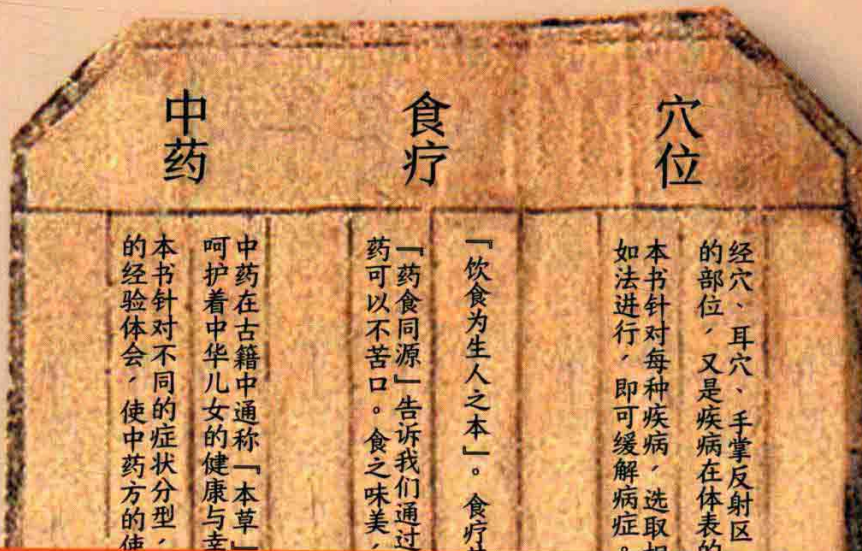 穴位
经穴、耳穴、手掌反射区
的部位，又是疾病在体表的
本书针对每种疾病，选取
如法进行，即可缓解病症。
食疗
『饮食为生人之本』。食疗
『药食同源』告诉我们通过
药可以不苦口。食之味美，
中药
中药在古籍中通称『本草』
呵护着中华儿女的健康与幸
本书针对不同的症状分型，
的经验体会，使中药方的使